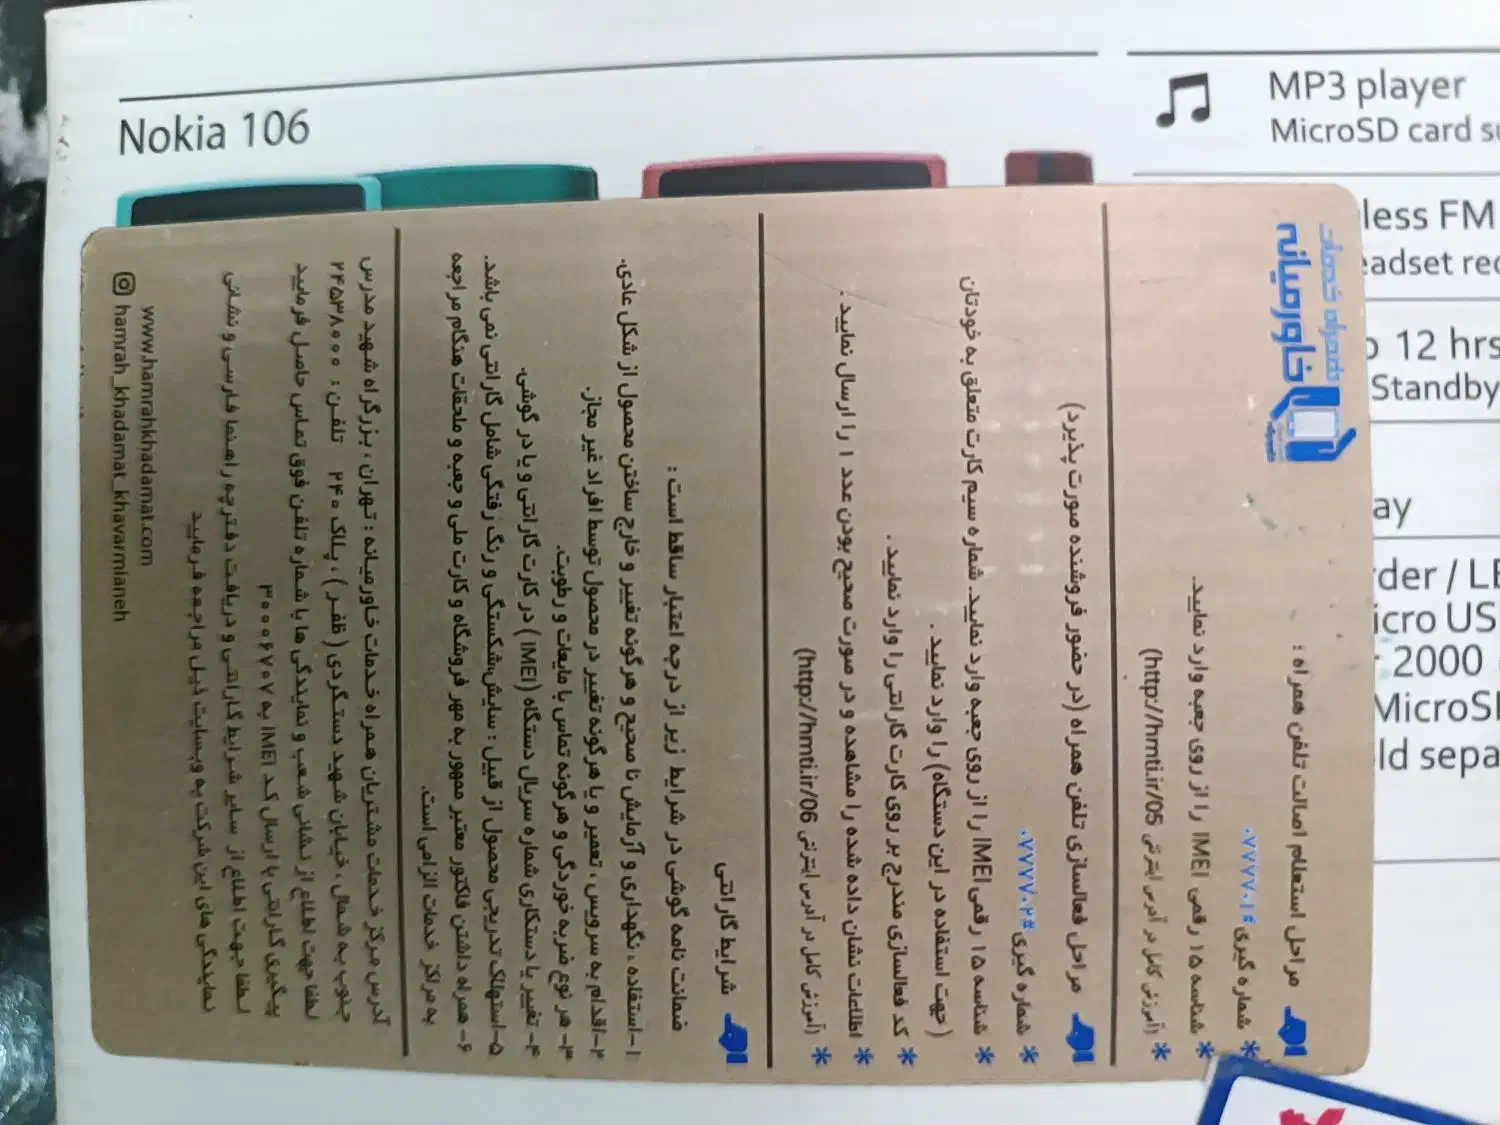 Nokia 106
MP3 player
MicroSD card su
less FM
eadset rec
12 hrs
Standby
ay
der / LE
icro US
2000
MicroSD
ld sepa
همراه خدمات
خاورمیانه
مراحل استعلام اصالت تلفن همراه :
* شماره گیری #۷۷۷۷۰۱*
* شناسه ۱۵ رقمی IMEI را از روی جعبه وارد نمایید.
* (آموزش کامل در آدرس اینترنتی http://hmti.ir/05)
مراحل فعالسازی تلفن همراه (در حضور فروشنده صورت پذیرد)
* شماره گیری #۷۷۷۷۰۲*
* شناسه ۱۵ رقمی IMEI را از روی جعبه وارد نمایید. شماره سیم کارت متعلق به خودتان
( جهت استفاده در این دستگاه) را وارد نمایید .
* کد فعالسازی مندرج بر روی کارت گارانتی را وارد نمایید .
* اطلاعات نشان داده شده را مشاهده و در صورت صحیح بودن عدد ۱ را ارسال نمایید .
* (آموزش کامل در آدرس اینترنتی http://hmti.ir/06)
شرایط گارانتی
ضمانت نامه گوشی در شرایط زیر از درجه اعتبار ساقط است :
۱-استفاده ، نگهداری و آزمایش نا صحیح و هرگونه تغییر و خارج ساختن محصول از شکل عادی.
۲-اقدام به سرویس ، تعمیر و یا هرگونه تغییر در محصول توسط افراد غیر مجاز.
۳- هر نوع ضربه خوردگی و هرگونه تماس با مایعات و رطوبت.
۴- تغییر یا دستکاری شماره سریال دستگاه (IMEI) در کارت گارانتی و یا در گوشی.
۵-استهلاک تدریجی محصول از قبیل : سایش،شکستگی و رنگ رفتگی شامل گارانتی نمی باشد.
۶- همراه داشتن فاکتور معتبر ممهور به مهر فروشگاه و کارت ملی و جعبه و ملحقات هنگام مراجعه
به مراکز خدمات الزامی است.
آدرس مرکز خدمات مشتریان همراه خدمات خاورمیانه : تهران ، بزرگراه شهید مدرس
جنوب به شمال ، خیابان شهید دستگردی ( ظفر ) ، پلاک ۲۴۰ تلفن : ۲۴۵۳۸۰۰۰
لطفا جهت اطلاع از نشانی شعب و نمایندگی ها با شماره تلفن فوق تماس حاصل فرمایید
پیگیری گارانتی با ارسال کد IMEI به ۳۰۰۰۶۷۰۷
لطفا جهت اطلاع از سایر شرایط گارانتی و دریافت دفترچه راهنما فارسی و نشانی
نمایندگی های این شرکت به وبسایت ذیل مراجعه فرمایید
www.hamrahkhadamat.com
hamrah_khadamat_khavarmianeh